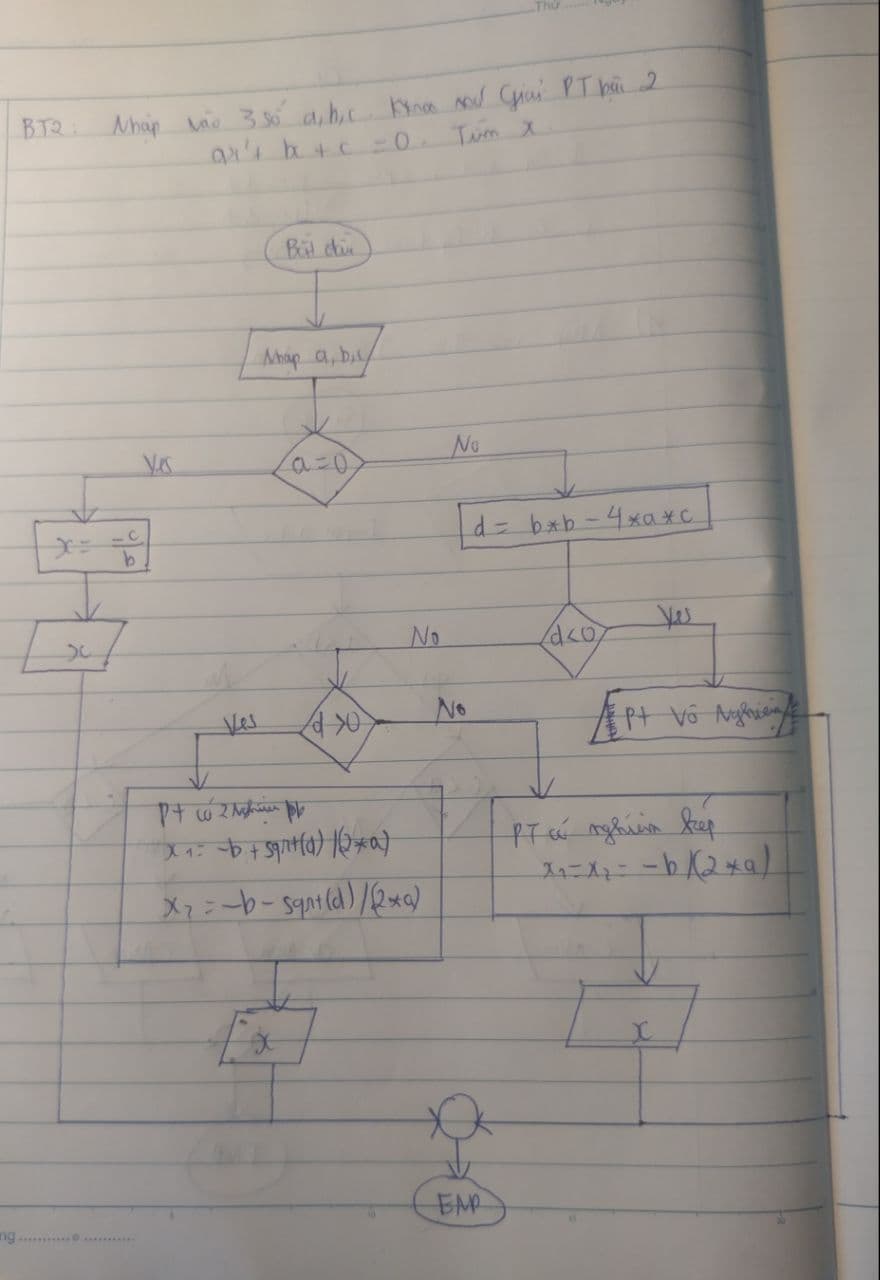 Thứ ...... Ngày
BT2: Nhập vào 3 số a, b, c. Giải PT bậc 2
ax² + bx + c = 0. Tìm x
Bắt đầu
Nhập a, b, c
a = 0
Yes
No
x = -c/b
d = b*b - 4*a*c
x
d<0
No
Yes
Pt Vô Nghiệm
d >0
Yes
No
Pt có 2 Nghiệm pb
x₁ = -b + sqrt(d) /(2*a)
x₂ = -b - sqrt(d) /(2*a)
PT có nghiệm kép
x₁=x₂ = -b /(2*a)
x
x
END